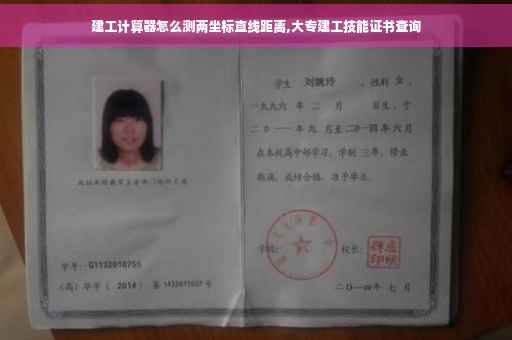 建工计算器怎么测两坐标直线距离,大专建工技能证书查询
学生 刘婉玲 ,性别 女 ,
一九九六 年 二 月 日生,于
二〇一一年九 月至二〇一四年 六 月
在本校高中部学习,学制 三年,修业
期满,成绩合格,准予毕业。
学校: 校长:
学号: G1132010755
(高)毕字( 2014 )第 1432011027 号
二〇一四年 七 月